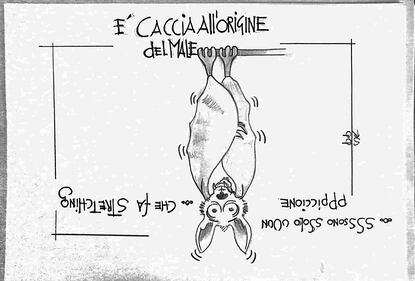 E' CACCIA All'ORIGINE
del MALE
... SSSSono SSolo uuon
pppiccione
... CHE fA STRETCHING